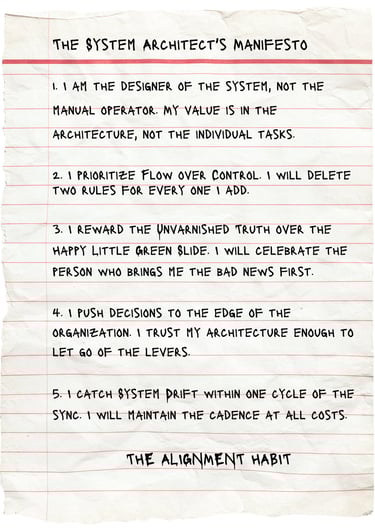 THE SYSTEM ARCHITECT'S MANIFESTO
1. I AM THE DESIGNER OF THE SYSTEM, NOT THE
MANUAL OPERATOR. MY VALUE IS IN THE
ARCHITECTURE, NOT THE INDIVIDUAL TASKS.
2. I PRIORITIZE FLOW OVER CONTROL. I WILL DELETE
TWO RULES FOR EVERY ONE I ADD.
3. I REWARD THE UNVARNISHED TRUTH OVER THE
HAPPY LITTLE GREEN SLIDE. I WILL CELEBRATE THE
PERSON WHO BRINGS ME THE BAD NEWS FIRST.
4. I PUSH DECISIONS TO THE EDGE OF THE
ORGANIZATION. I TRUST MY ARCHITECTURE ENOUGH TO
LET GO OF THE LEVERS.
5. I CATCH SYSTEM DRIFT WITHIN ONE CYCLE OF THE
SYNC. I WILL MAINTAIN THE CADENCE AT ALL COSTS.
THE ALIGNMENT HABIT